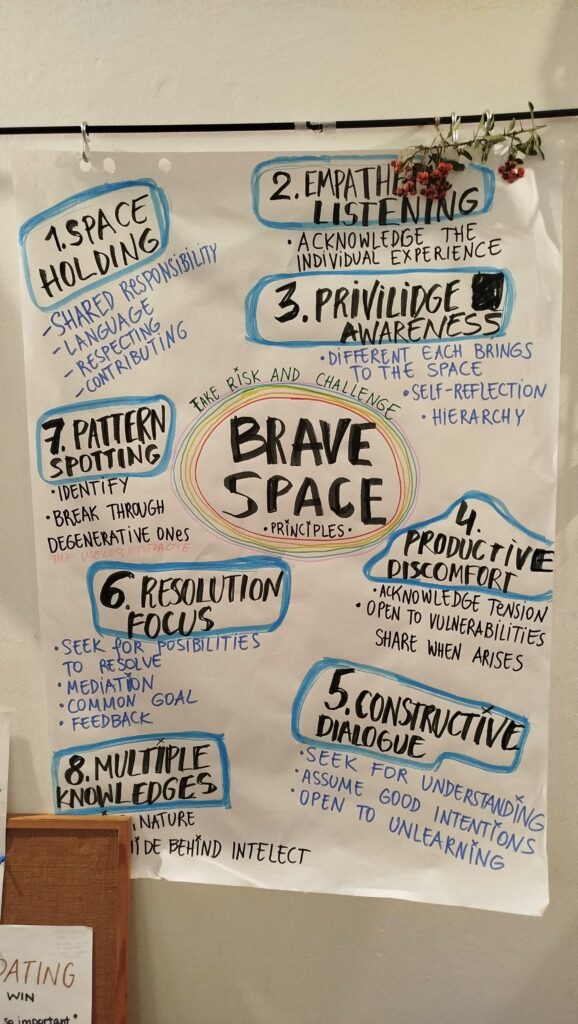 1. SPACE
HOLDING
- SHARED RESPONSIBILITY
- LANGUAGE
- RESPECTING
- CONTRIBUTING
2. EMPATHE
LISTENING
• ACKNOWLEDGE THE
INDIVIDUAL EXPERIENCE
3. PRIVILIDGE
AWARENESS
• DIFFERENT EACH BRINGS
TO THE SPACE
• SELF-REFLECTION
• HIERARCHY
TAKE RISK AND CHALLENGE
BRAVE
SPACE
• PRINCIPLES •
4.
PRODUCTIVE
DISCOMFORT
• ACKNOWLEDGE TENSION
• OPEN TO VULNERABILITIES
SHARE WHEN ARISES
5. CONSTRUCTIVE
DIALOGUE
• SEEK FOR UNDERSTANDING
• ASSUME GOOD INTENTIONS
• OPEN TO UNLEARNING
6. RESOLUTION
FOCUS
• SEEK FOR POSIBILITIES
TO RESOLVE
• MEDIATION
• COMMON GOAL
• FEEDBACK
7. PATTERN
SPOTTING
• IDENTIFY
• BREAK THROUGH
DEGENERATIVE ONES
THE USELESS/DISTRACTIVE
8. MULTIPLE
KNOWLEDGES
, NATURE
HIDE BEHIND INTELECT
DATING
WIN
so important"